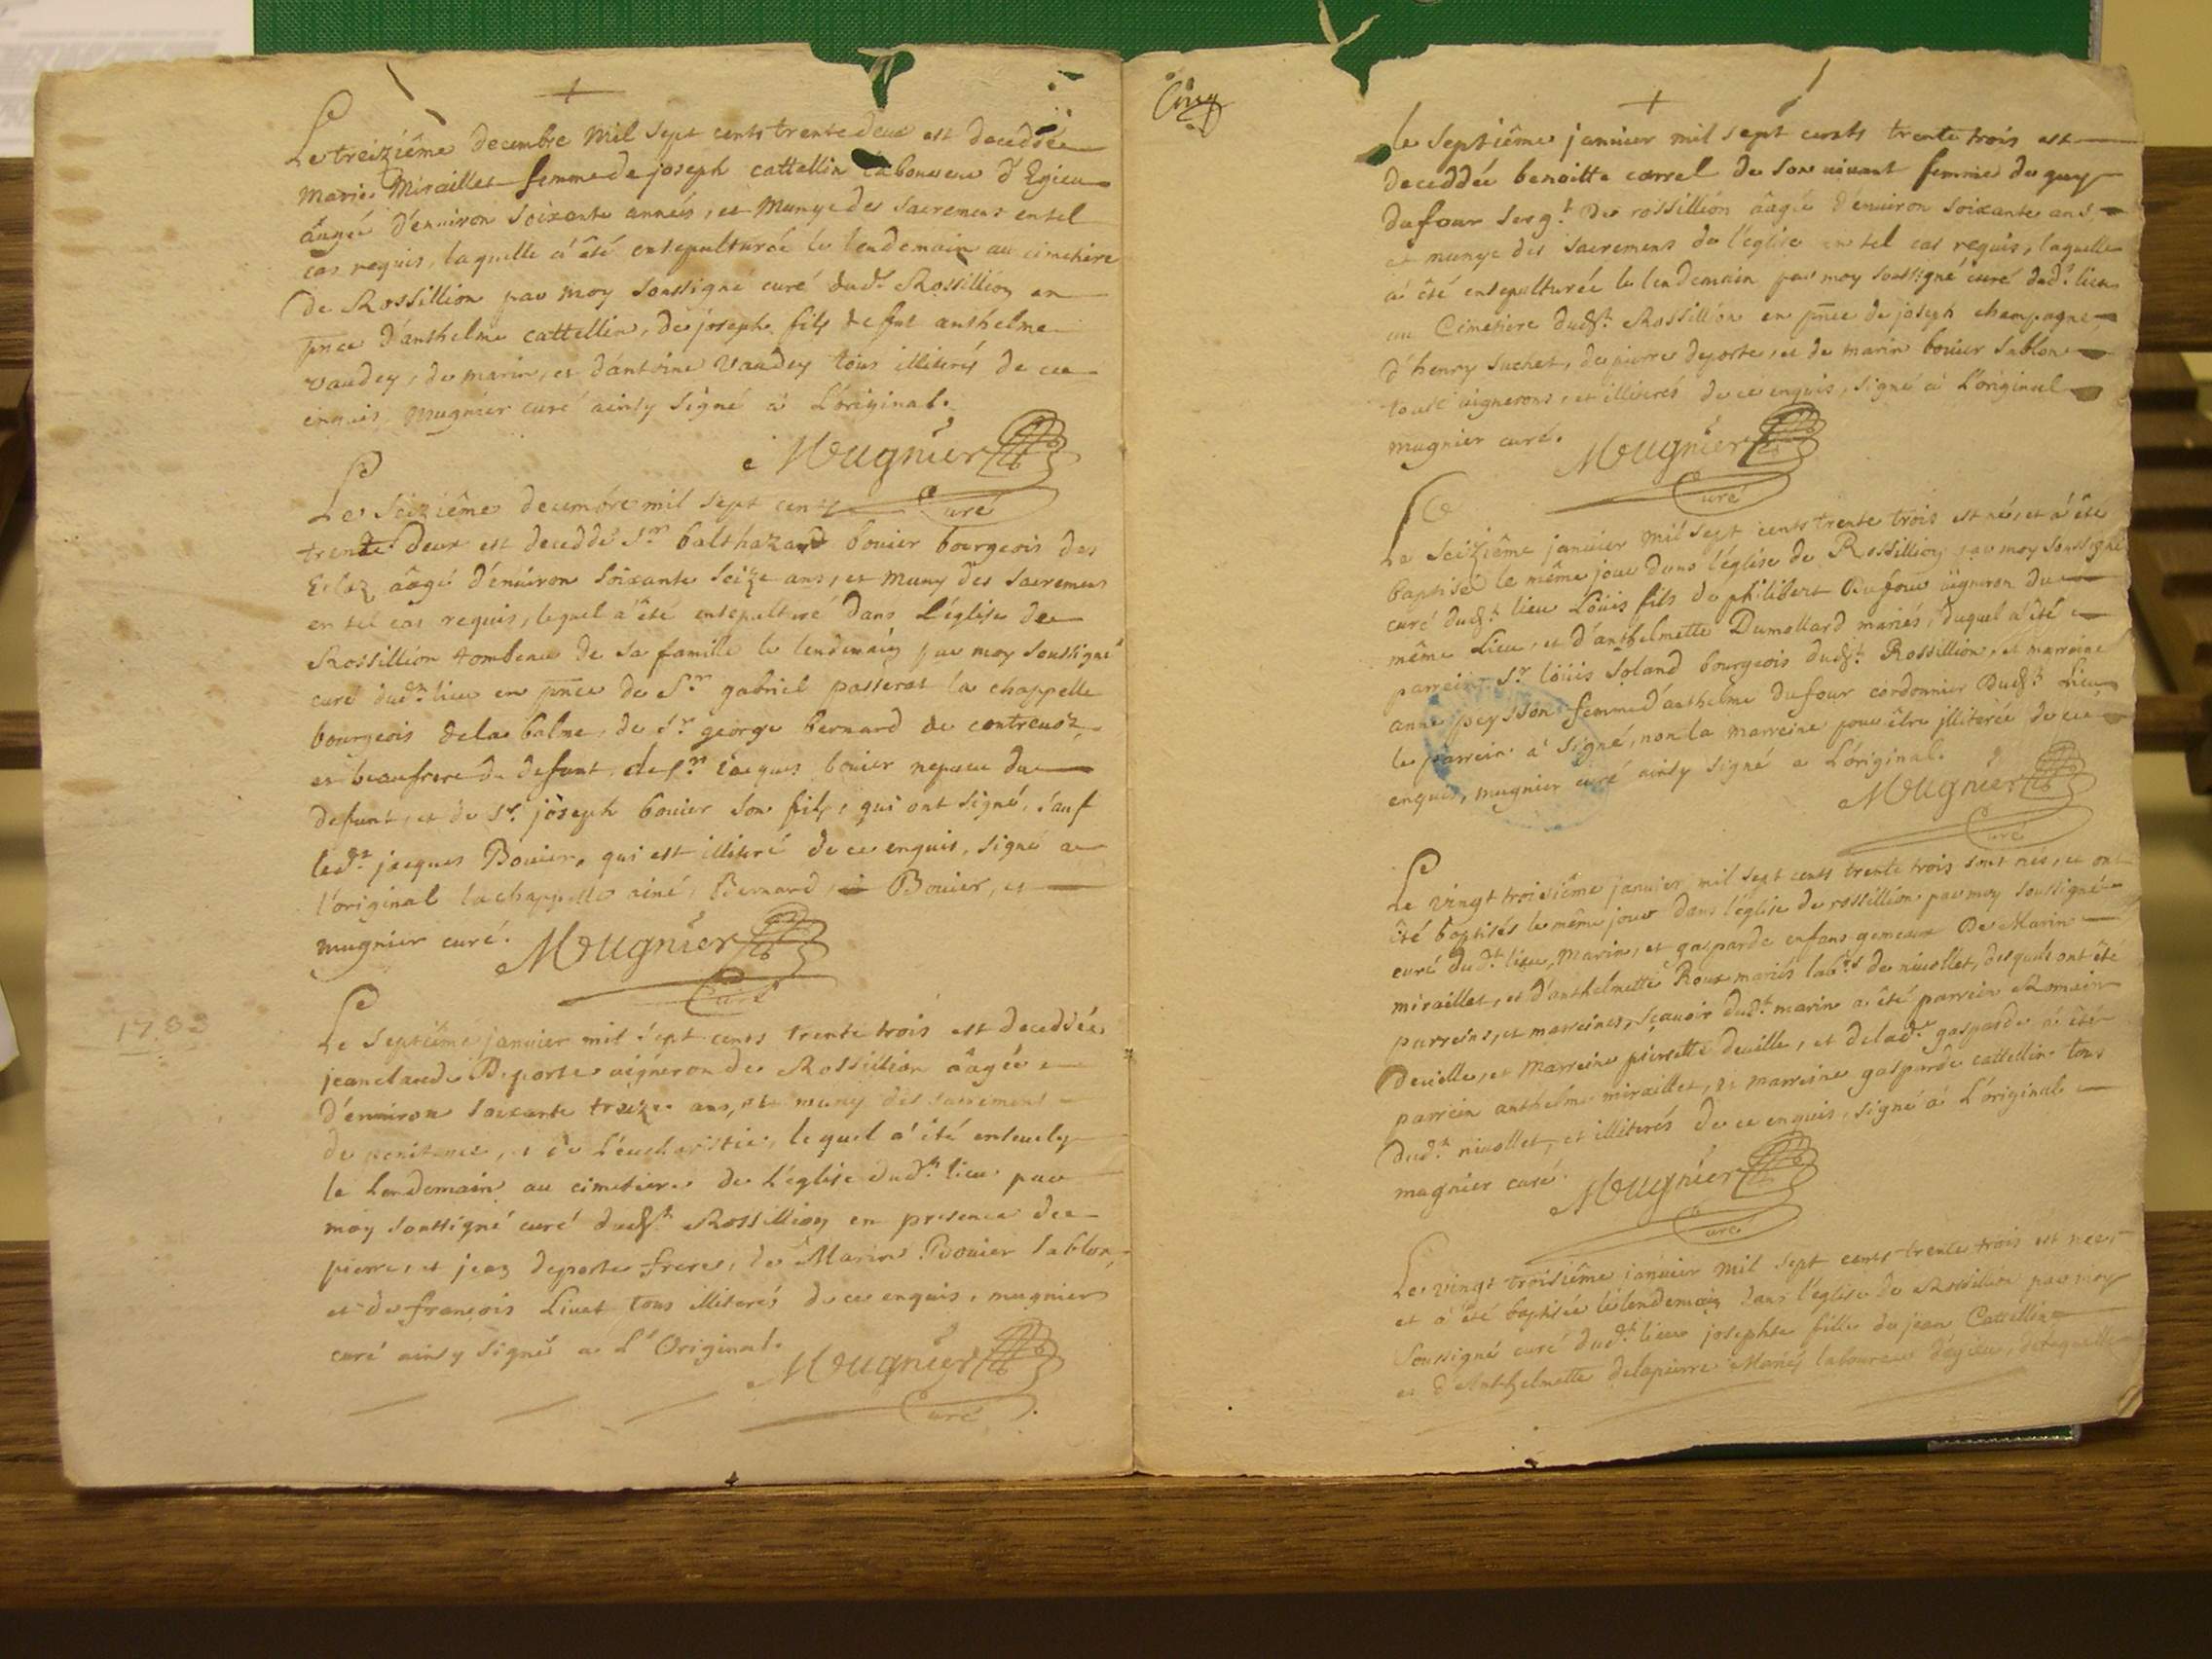 Le treiziême decembre mil sept cents trente deux est deceddée
Marie Miraillet femme de joseph cattellin laboureur d'Egieu
âagée d'environ soixante années, et munye des sacremens en tel
cas requis, laquelle a êté ensepulturée le lendemain au cimetiere
de Rossillion par moy soussigné curé dudt Rossillion en
pnce d'anthelme cattellin, de joseph fils de fut anthelme
vaudey, de marin, et d'antoine Vaudey tous illiterés de ce
enquis, mugnier curé ainsy signé à L'original.
Mugnier
Curé
Le Seiziême decembre mil sept cents
trente deux est deceddé Sr balthazard bouier bourgeois des
Eclaz âagé d'environ soixante seize ans, et muny des sacremens
en tel cas requis, lequel a êté ensepulturé dans L'église de
Rossillion tombeau de sa famille le lendemain par moy soussigné
curé dudt lieu en pnce de Sr gabriel passerat la chappelle
bourgeois de la balme, de Sr george bernard de contrevoz
et beaufrere du defunt, de Sr Jacques bouier nepveu du
defunt, et de Sr joseph bouier son fils, qui ont signé, sauf
ledt jacques Bouier, qui est illiteré de ce enquis, signé a
l'original lachappelle ainé, Bernard, Bouier, et
mugnier curé. Mugnier
Curé
1733
Le Septiême janvier mil sept cents trente trois est deceddé
jeanclaude Deporte vigneron de Rossillion âagé
d'environ soixante treize ans, et muny des sacremens
de penitence, et de L'eucharistie, lequel a êté ensevely
le Lendemain au cimetiere de L'église dudt lieu par
moy soussigné curé dudt Rossillion en presence de
pierre, et jean deporte freres, de Marin Bouier Sablon,
et de françois Livet tous illiterés de ce enquis, mugnier
curé ainsy signé a L'Original.
Mugnier
Curé
Cinq
le Septiême janvier mil sept cents trente trois est
deceddée benoitte carrel de son vivant femme de guy
dufour sergt de rossillion âagée d'environ soixante ans,
et munye des sacremens de l'église en tel cas requis, laquelle
a êté ensepulturée le lendemain par moy soussigné curé dudt lieu
au Cimetiere dudt Rossillion en pnce de joseph champagne,
d'henry suchet, de pierre deporte, et de marin bouier Sablon
tous vignerons, et illiterés de ce enquis, signé à L'original
mugnier curé. Mugnier
Curé
Le Seiziême janvier mil sept cents trente trois est né, et a êté
baptisé le même jour dans l'église de Rossillion par moy soussigné
curé dudt lieu Loüis fils de philibert Dufour vigneron du
même Lieu, et d'anthelmette Dumollard mariés, duquel a êté
parrein Sr loüis Soland bourgeois dudt Rossillion, et marreine
anne peysson femme d'anthelme dufour cordonnier dudt Lieu,
le parrein a signé, non la marreine pour être illiterée de ce
enquis, mugnier curé ainsy signé a L'original.
Mugnier
Curé
Le vingt troisiême janvier mil sept cents trente trois sont nés, et ont
êté baptisés le même jour dans l'église de rossillion par moy soussigné
curé dudt lieu, Marin, et gasparde enfans gemeaux De Marin
miraillet, et d'anthelmette Roux mariés labrs de nivollet, desquels ont êté
parreins, et marreines, sçavoir dudt marin a êté parrein Romain
Deville, et Marreine pierrette deville, et de lade gasparde a êté
parrein anthelme miraillet, et marreine gasparde cattellin tous
Dudt nivollet, et illiterés de ce enquis, signé à L'original
mugnier curé. Mugnier
Curé
Le vingt troisiême janvier mil sept cents trente trois est née,
et a êté baptisée le lendemain dans l'église de Rossillion par moy
Soussigné curé dudt lieu josephte fille de jean Cattellin
et d'Anthelmette delapierre Mariés laboureur d'égieu, de laquelle